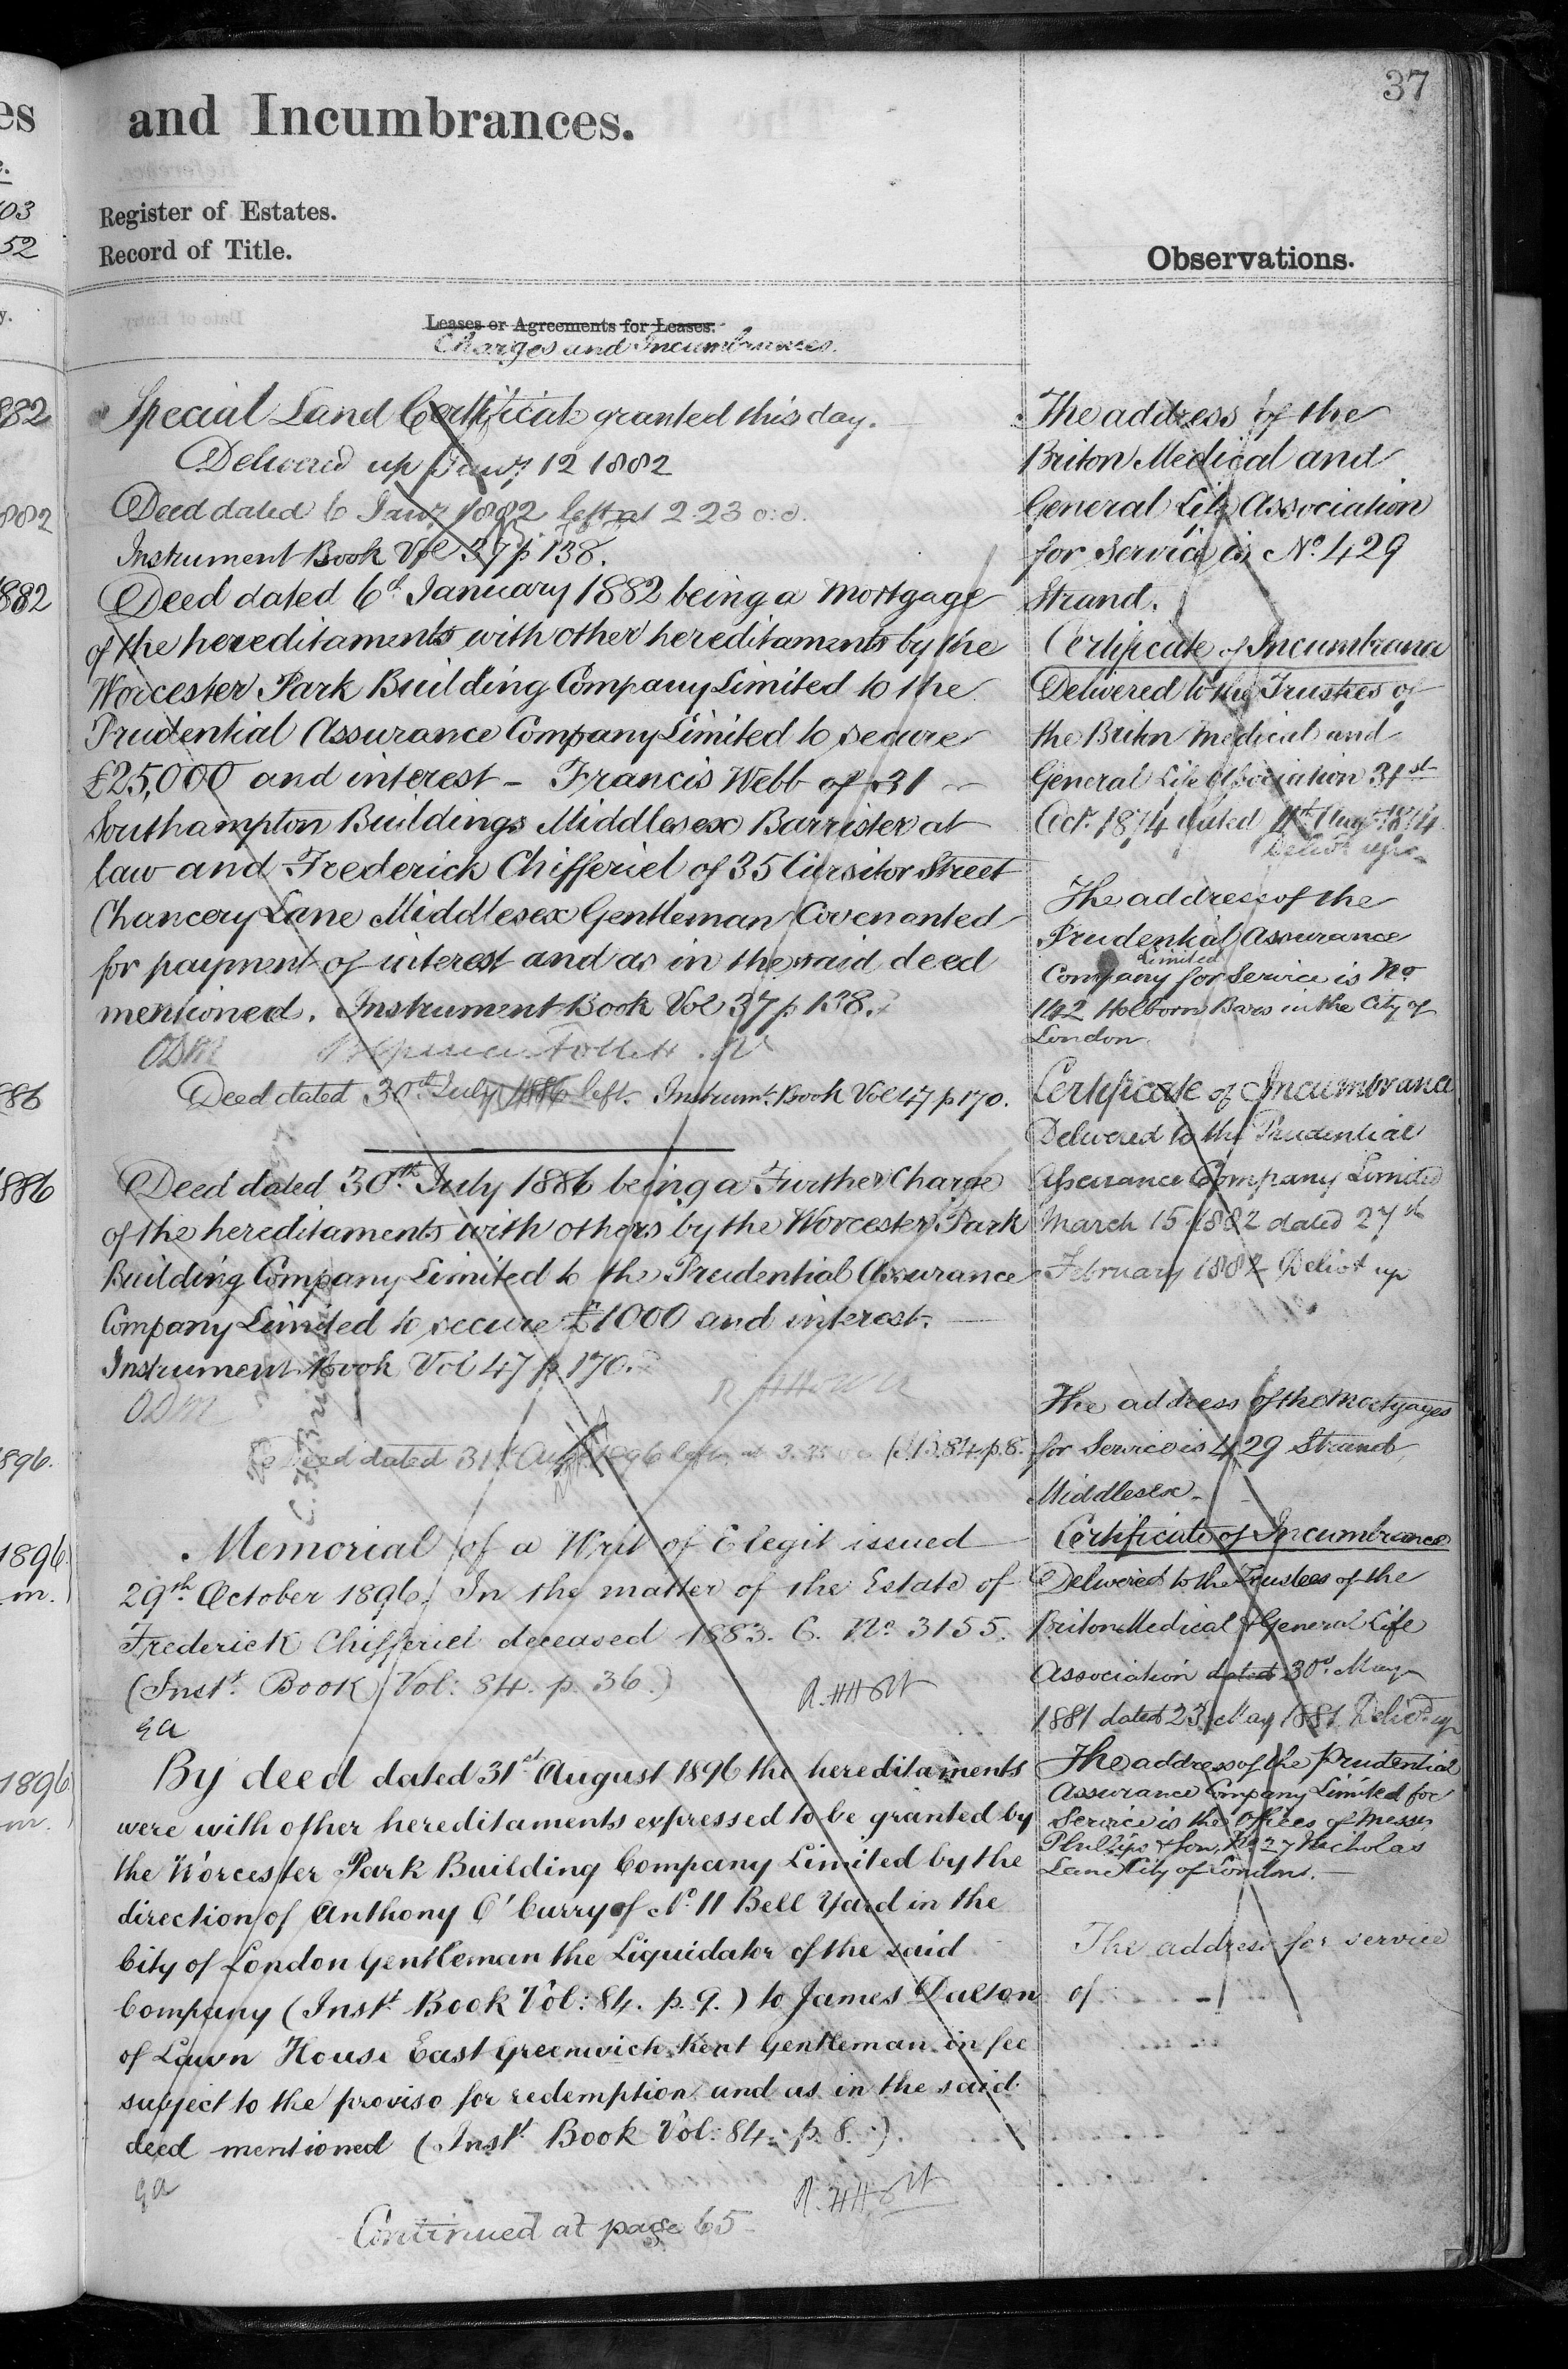 37
es
and Incumbrances.
03
Register of Estates.
52
Record of Title.
Observations.
y.
Leases or Agreements for Leases.
Charges and Incumbrances.
882
Special Land Certificate granted this day.
Delivered up Jany 12 1882
882
Deed dated 6 Jany 1882 left at 2.23 o.c.
Instrument Book Vol 37 p 138.
1882
Deed dated 6th January 1882 being a Mortgage
of the hereditaments with other hereditaments by the
Worcester Park Building Company Limited to the
Prudential Assurance Company Limited to secure
£25,000 and interest – Francis Webb of 31
Southampton Buildings Middlesex Barrister at
law and Frederick Chifferiel of 35 Cursitor Street
Chancery Lane Middlesex Gentleman Covenanted
for payment of interest and as in the said deed
mentioned. Instrument Book Vol 37 p 138.
ODM
886
Deed dated 30th July 1886 left. Instrumt. Book Vol 47 p 170.
1886
Deed dated 30th July 1886 being a Further Charge
of the hereditaments with others by the Worcester Park
Building Company Limited to the Prudential Assurance
Company Limited to secure £1000 and interest.
Instrument Book Vol 47 p 170.
ODM
1896.
Deed dated 31st Augt 1896 left at 3.35 o.c. (I.B. 84. p. 8.
1896
m.
Memorial of a Writ of Elegit issued
29th October 1896. In the matter of the Estate of
Frederick Chifferiel deceased 1883. C. No. 3155.
(Inst. Book Vol: 84. p. 36.)
1896
m.
By deed dated 31st August 1896 the hereditaments
were with other hereditaments expressed to be granted by
the Worcester Park Building Company Limited by the
direction of Anthony O'Curry of No. 11 Bell Yard in the
City of London Gentleman the Liquidator of the said
Company (Inst. Book Vol: 84. p. 9.) to James Dalton
of Lawn House East Greenwich Kent Gentleman in fee
subject to the proviso for redemption and as in the said
deed mentioned (Inst. Book Vol: 84. p. 8.).
Continued at page 65
The address of the
Briton Medical and
General Life Association
for Service is No. 429
Strand.
Certificate of Incumbrance
Delivered to the Trustees of
the Briton Medical and
General Life Association 31st
Oct. 1874 dated 11th Augt 1874
Delivd up
The address of the
Prudential Assurance
Company Limited for Service is No
142 Holborn Bars in the City of
London
Certificate of Incumbrance
Delivered to the Prudential
Assurance Company Limited
March 15 1882 dated 27th
February 1882 Delivd up
The address of the Mortgages
for Service is 429 Strand
Middlesex.
Certificate of Incumbrance
Delivered to the Trustees of the
Briton Medical & General Life
Association dated 30th May
1881 dated 23 May 1881 Delivd up
The address of the Prudential
Assurance Company Limited for
Service is the Offices of Messrs
Phillips & Son, No 27 Nicholas
Lane City of London.
The address for service
of